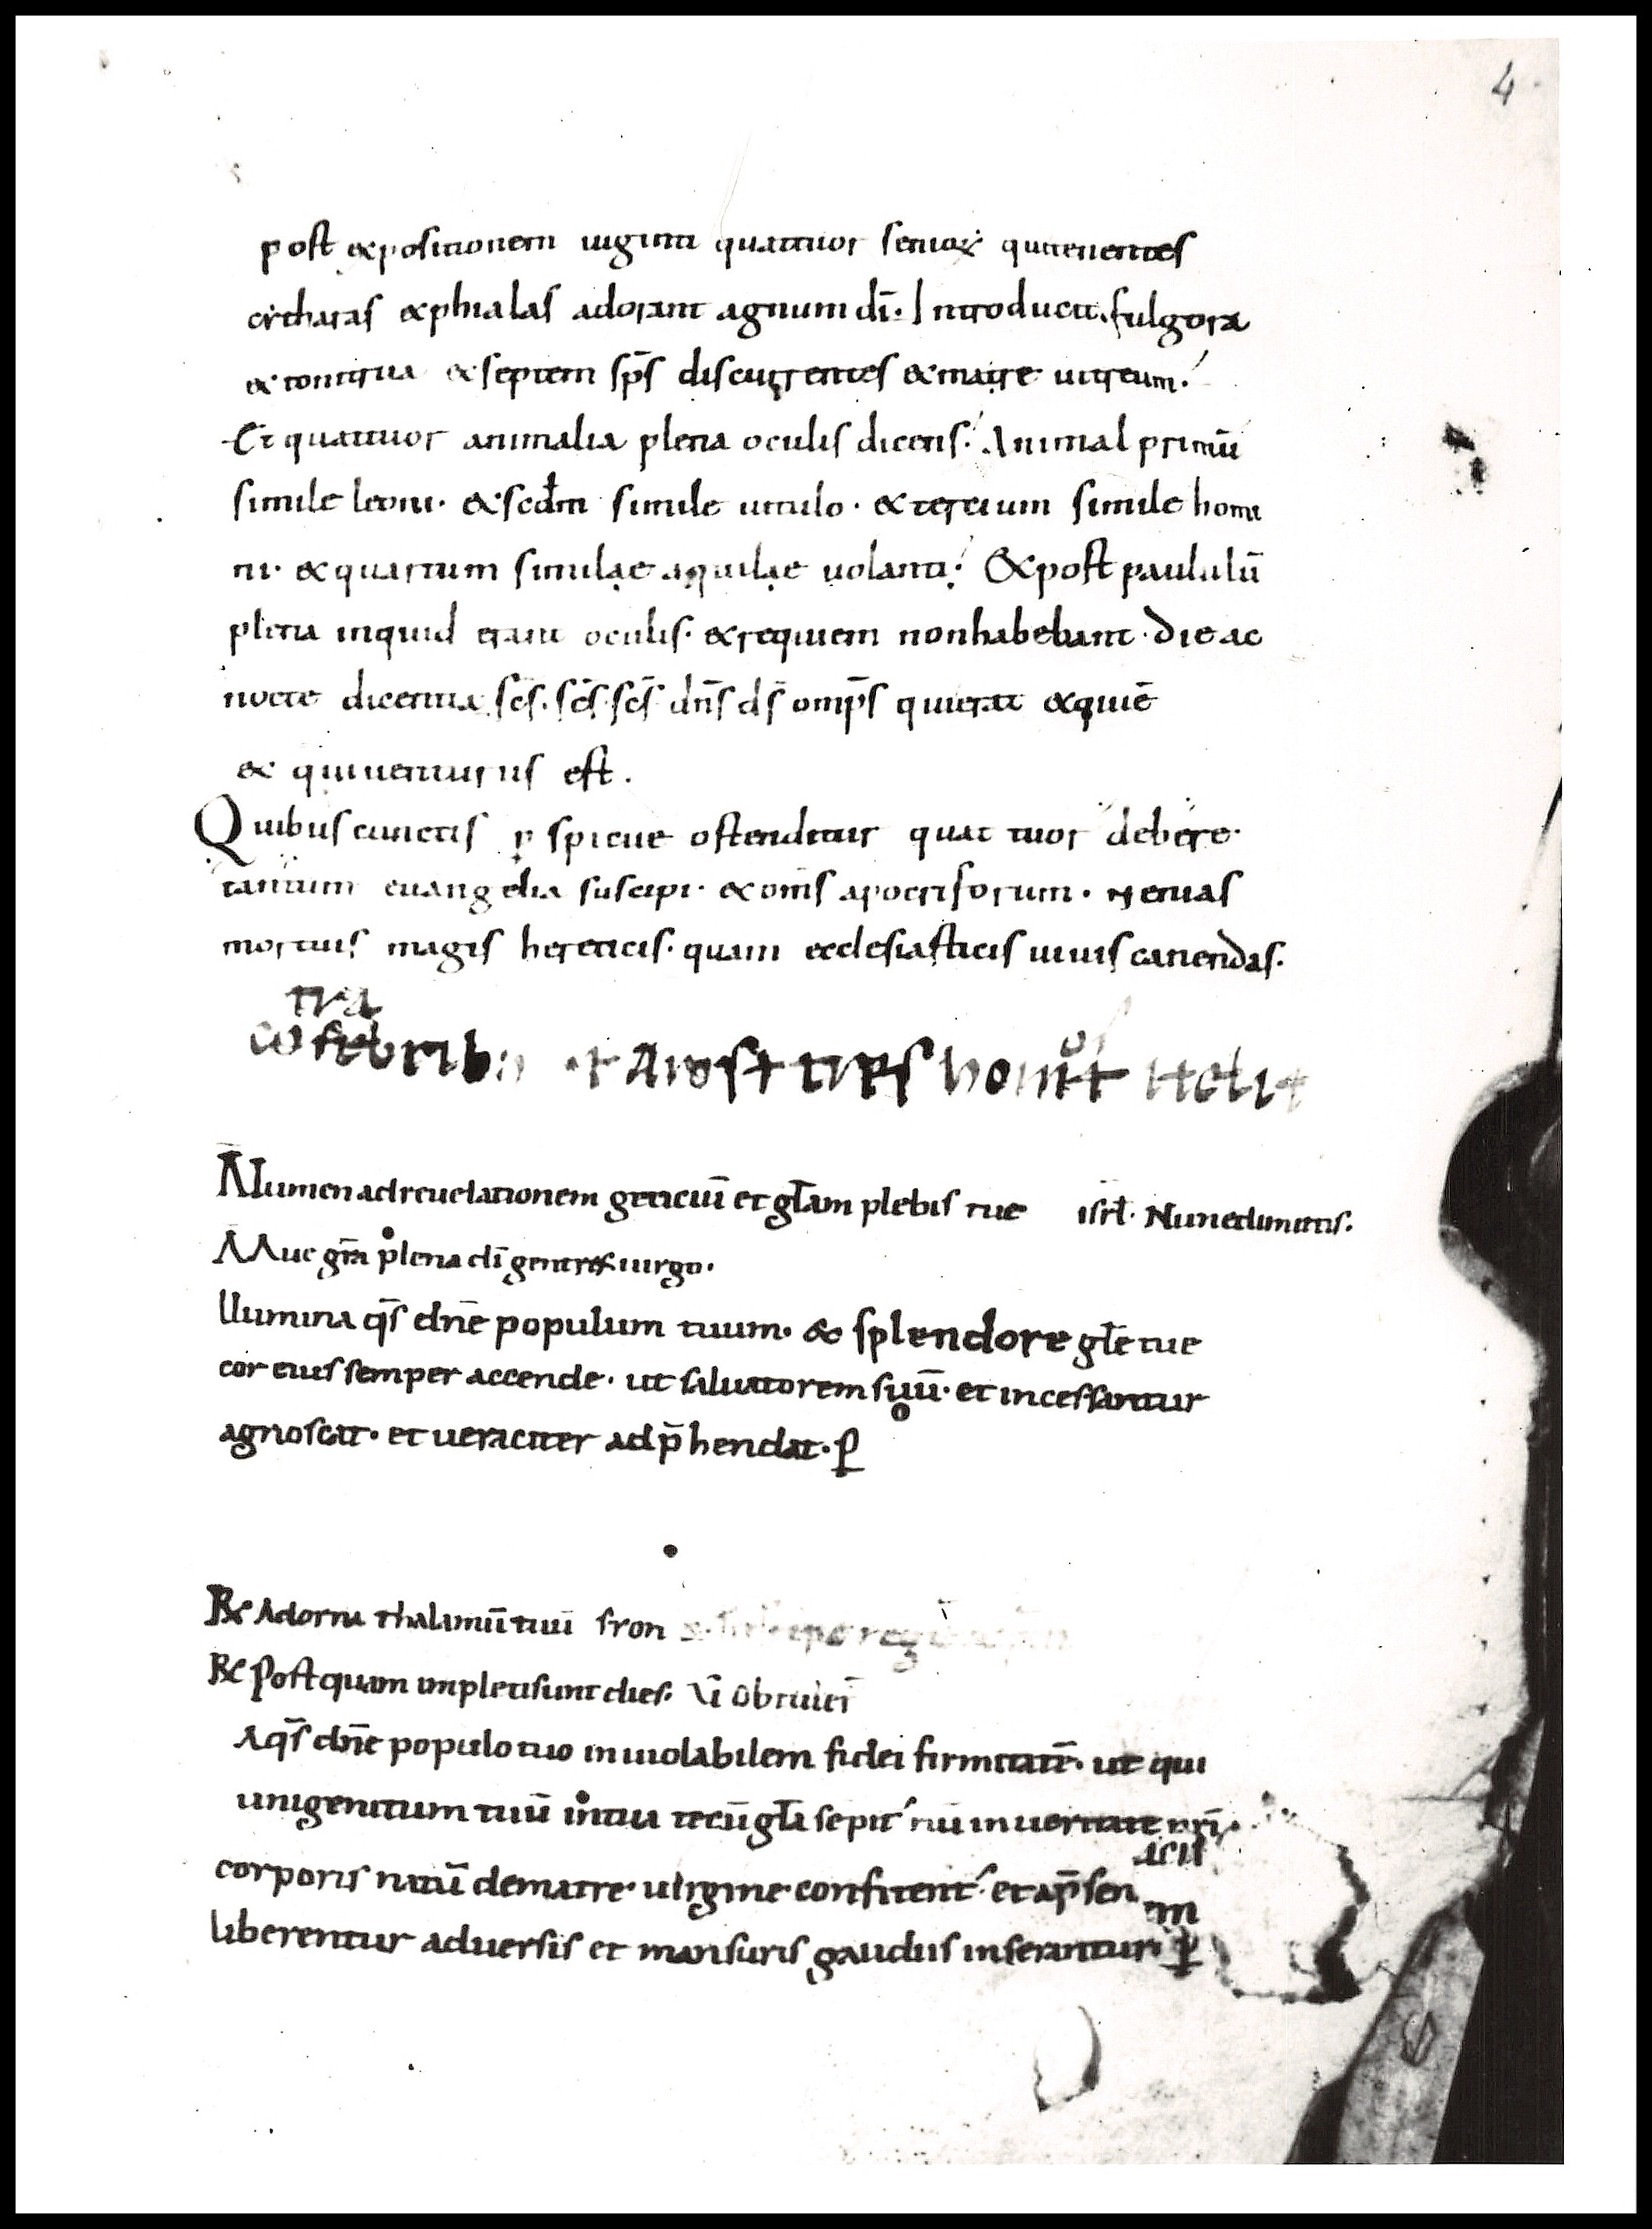 4
post expositionem uiginti quattuor senioꝝ qui tenentes
cytharas & phialas adorant agnum dī· Introducit fulgora
& tonitrua & septem sp̄s discurrentes & mare uitreum·
Et quattuor animalia plena oculis dicens· Animal primū
simile leoni· & scđm simile uitulo· & tercium simile homi
ni· & quartum similae aquilae uolanti· & post paululū
plena inquid erant oculis· & requiem non habebant· die ac
nocte dicentia sc̄s· sc̄s· sc̄s dn̄s ds̄ omp̄s qui erat & qui ē
& qui uenturus est.
Quibus cunctis ꝑspicue ostenditur quattuor debere·
tantum euangelia suscipi· & om̄s apocriforum· nenias
mortuis magis hereticis· quam ecclesiasticis uiuis canendas·
tra
Ā Lumen ad reuelationem genciū et gl̄am plebis tue isrl̄· Nunc dimittis·
Ā Aue gr̄a plena dī genitrix uirgo·
Illumina qs̄ dn̄e populum tuum· & splendore gl̄e tue
cor eius semper accende· ut saluatorem suū· et incessantur
agnoscat· et ueraciter adp̄hendat· ꝑ
R̸ Adorna thalamū tuū sion & suscipe regē
R̸ Postquam impleti sunt dies· V̄ Obtuler̄
A qs̄ dn̄e populo tuo inuiolabilem fidei firmitatē· ut qui
unigenitum tuū in tua tecū gl̄a sempit' nū in ueritate nr̄i
corporis natū de matre uirgine confitent'· et a p̄sen
liberentur aduersis et mansuris gaudiis inserantur· ꝑ